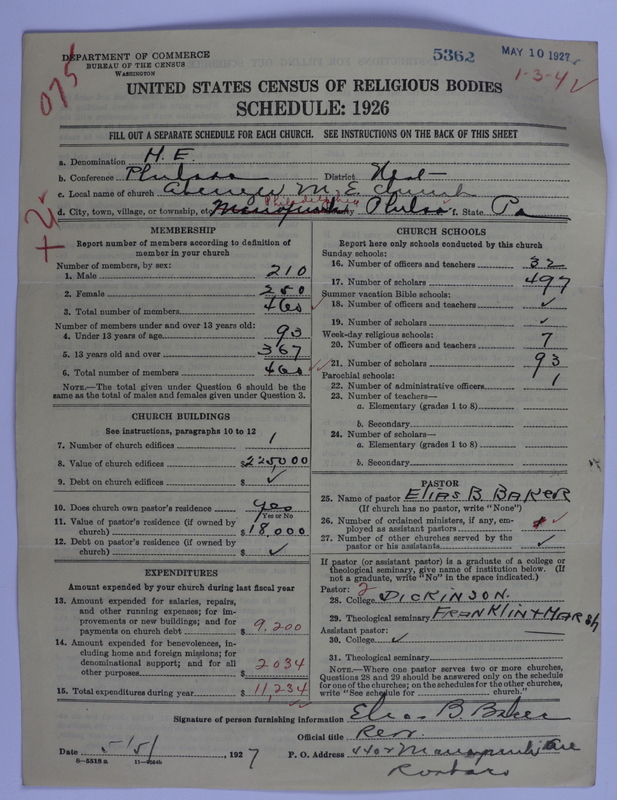 DEPARTMENT OF COMMERCE
BUREAU OF THE CENSUS
WASHINGTON
075
5362
MAY 10 1927
1-3-4
UNITED STATES CENSUS OF RELIGIOUS BODIES
SCHEDULE: 1926
FILL OUT A SEPARATE SCHEDULE FOR EACH CHURCH. SEE INSTRUCTIONS ON THE BACK OF THIS SHEET
a. Denomination
b. Conference Phila District West
c. Local name of church M. E. Church
Philadelphia
d. City, town, village, or township, etc. Phila f. State Pa
MEMBERSHIP
Report number of members according to definition of
member in your church
Number of members, by sex:
1. Male 210
2. Female 250
3. Total number of members 460 ✓
Number of members under and over 13 years old:
4. Under 13 years of age 93
5. 13 years old and over 367
6. Total number of members 460 ✓
NOTE.—The total given under Question 6 should be the
same as the total of males and females given under Question 3.
CHURCH BUILDINGS
See instructions, paragraphs 10 to 12
7. Number of church edifices 1
8. Value of church edifices $225,000
9. Debt on church edifices $ ✓
10. Does church own pastor's residence yes
Yes or No
11. Value of pastor's residence (if owned by
church) $18,000
12. Debt on pastor's residence (if owned by
church) $ ✓
EXPENDITURES
Amount expended by your church during last fiscal year
13. Amount expended for salaries, repairs,
and other running expenses; for im-
provements or new buildings; and for
payments on church debt $ 9,200
14. Amount expended for benevolences, in-
cluding home and foreign missions; for
denominational support; and for all
other purposes 2034
15. Total expenditures during year $ 11,234
CHURCH SCHOOLS
Report here only schools conducted by this church
Sunday schools:
16. Number of officers and teachers 32
17. Number of scholars 497
Summer vacation Bible schools:
18. Number of officers and teachers ✓
19. Number of scholars ✓
Week-day religious schools:
20. Number of officers and teachers 7
21. Number of scholars 93
Parochial schools:
22. Number of administrative officers 1
23. Number of teachers—
a. Elementary (grades 1 to 8)
b. Secondary
24. Number of scholars—
a. Elementary (grades 1 to 8)
b. Secondary
PASTOR
25. Name of pastor ELIAS B. BAKER
(If church has no pastor, write "None")
26. Number of ordained ministers, if any, em-
ployed as assistant pastors ✓
27. Number of other churches served by the
pastor or his assistants ✓
If pastor (or assistant pastor) is a graduate of a college or
theological seminary, give name of institution below. (If
not a graduate, write "No" in the space indicated.)
Pastor: 2
28. College DICKINSON.
29. Theological seminary FRANKLIN + MARSH
Assistant pastor:
30. College ✓
31. Theological seminary
NOTE.—Where one pastor serves two or more churches,
Questions 28 and 29 should be answered only on the schedule
for one of the churches; on the schedules for the other churches,
write "See schedule for church."
Signature of person furnishing information Elias B. Baker
Official title Rev.
Date 5/5/ 1927 P. O. Address Ave